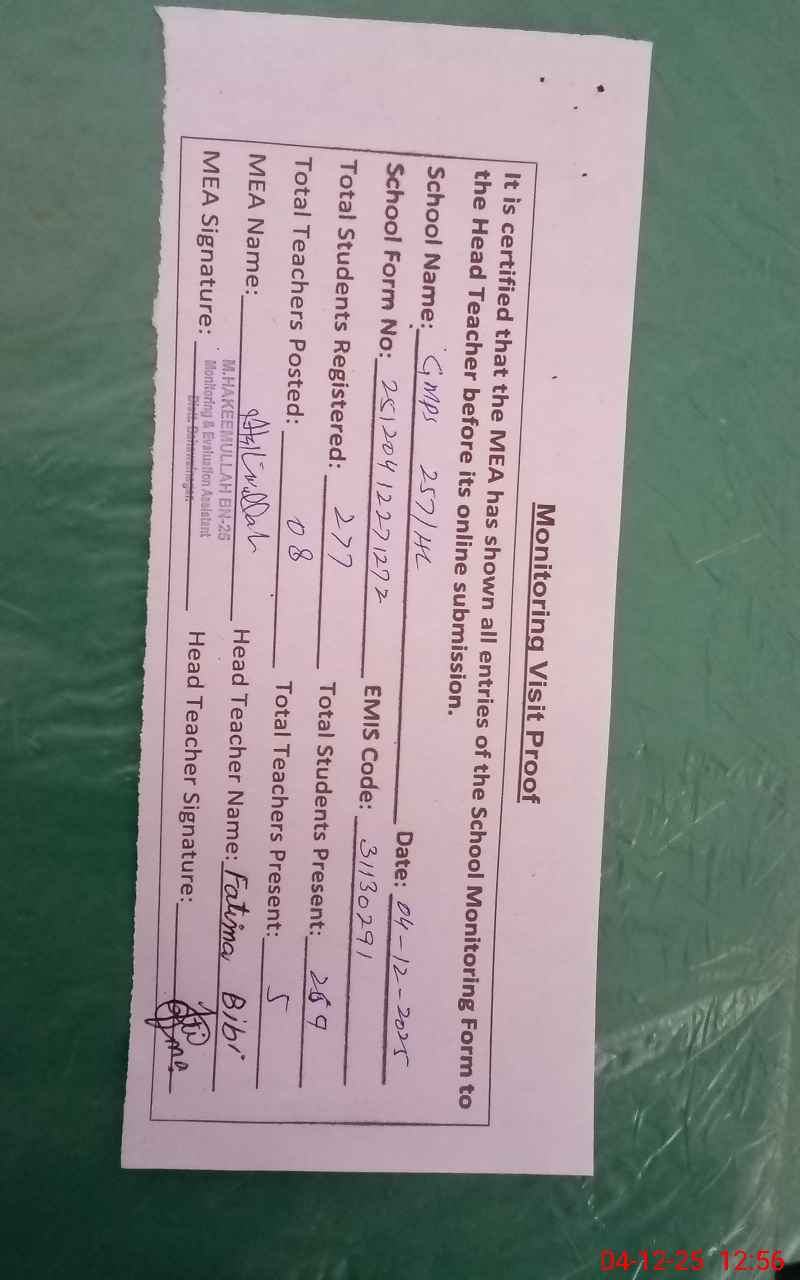 Monitoring Visit Proof
It is certified that the MEA has shown all entries of the School Monitoring Form to
the Head Teacher before its online submission.
School Name: GMPS 257/HL Date: 04-12-2025
School Form No: 251204122271272 EMIS Code: 31130291
Total Students Registered: 277 Total Students Present: 269
Total Teachers Posted: 08 Total Teachers Present: 5
MEA Name: Head Teacher Name: Fatima Bibi
M.HAKEEMULLAH BN-25
Monitoring & Evaluation Assistant
Distt. Bahawalnagar.
MEA Signature: Head Teacher Signature:
04-12-25 12:56